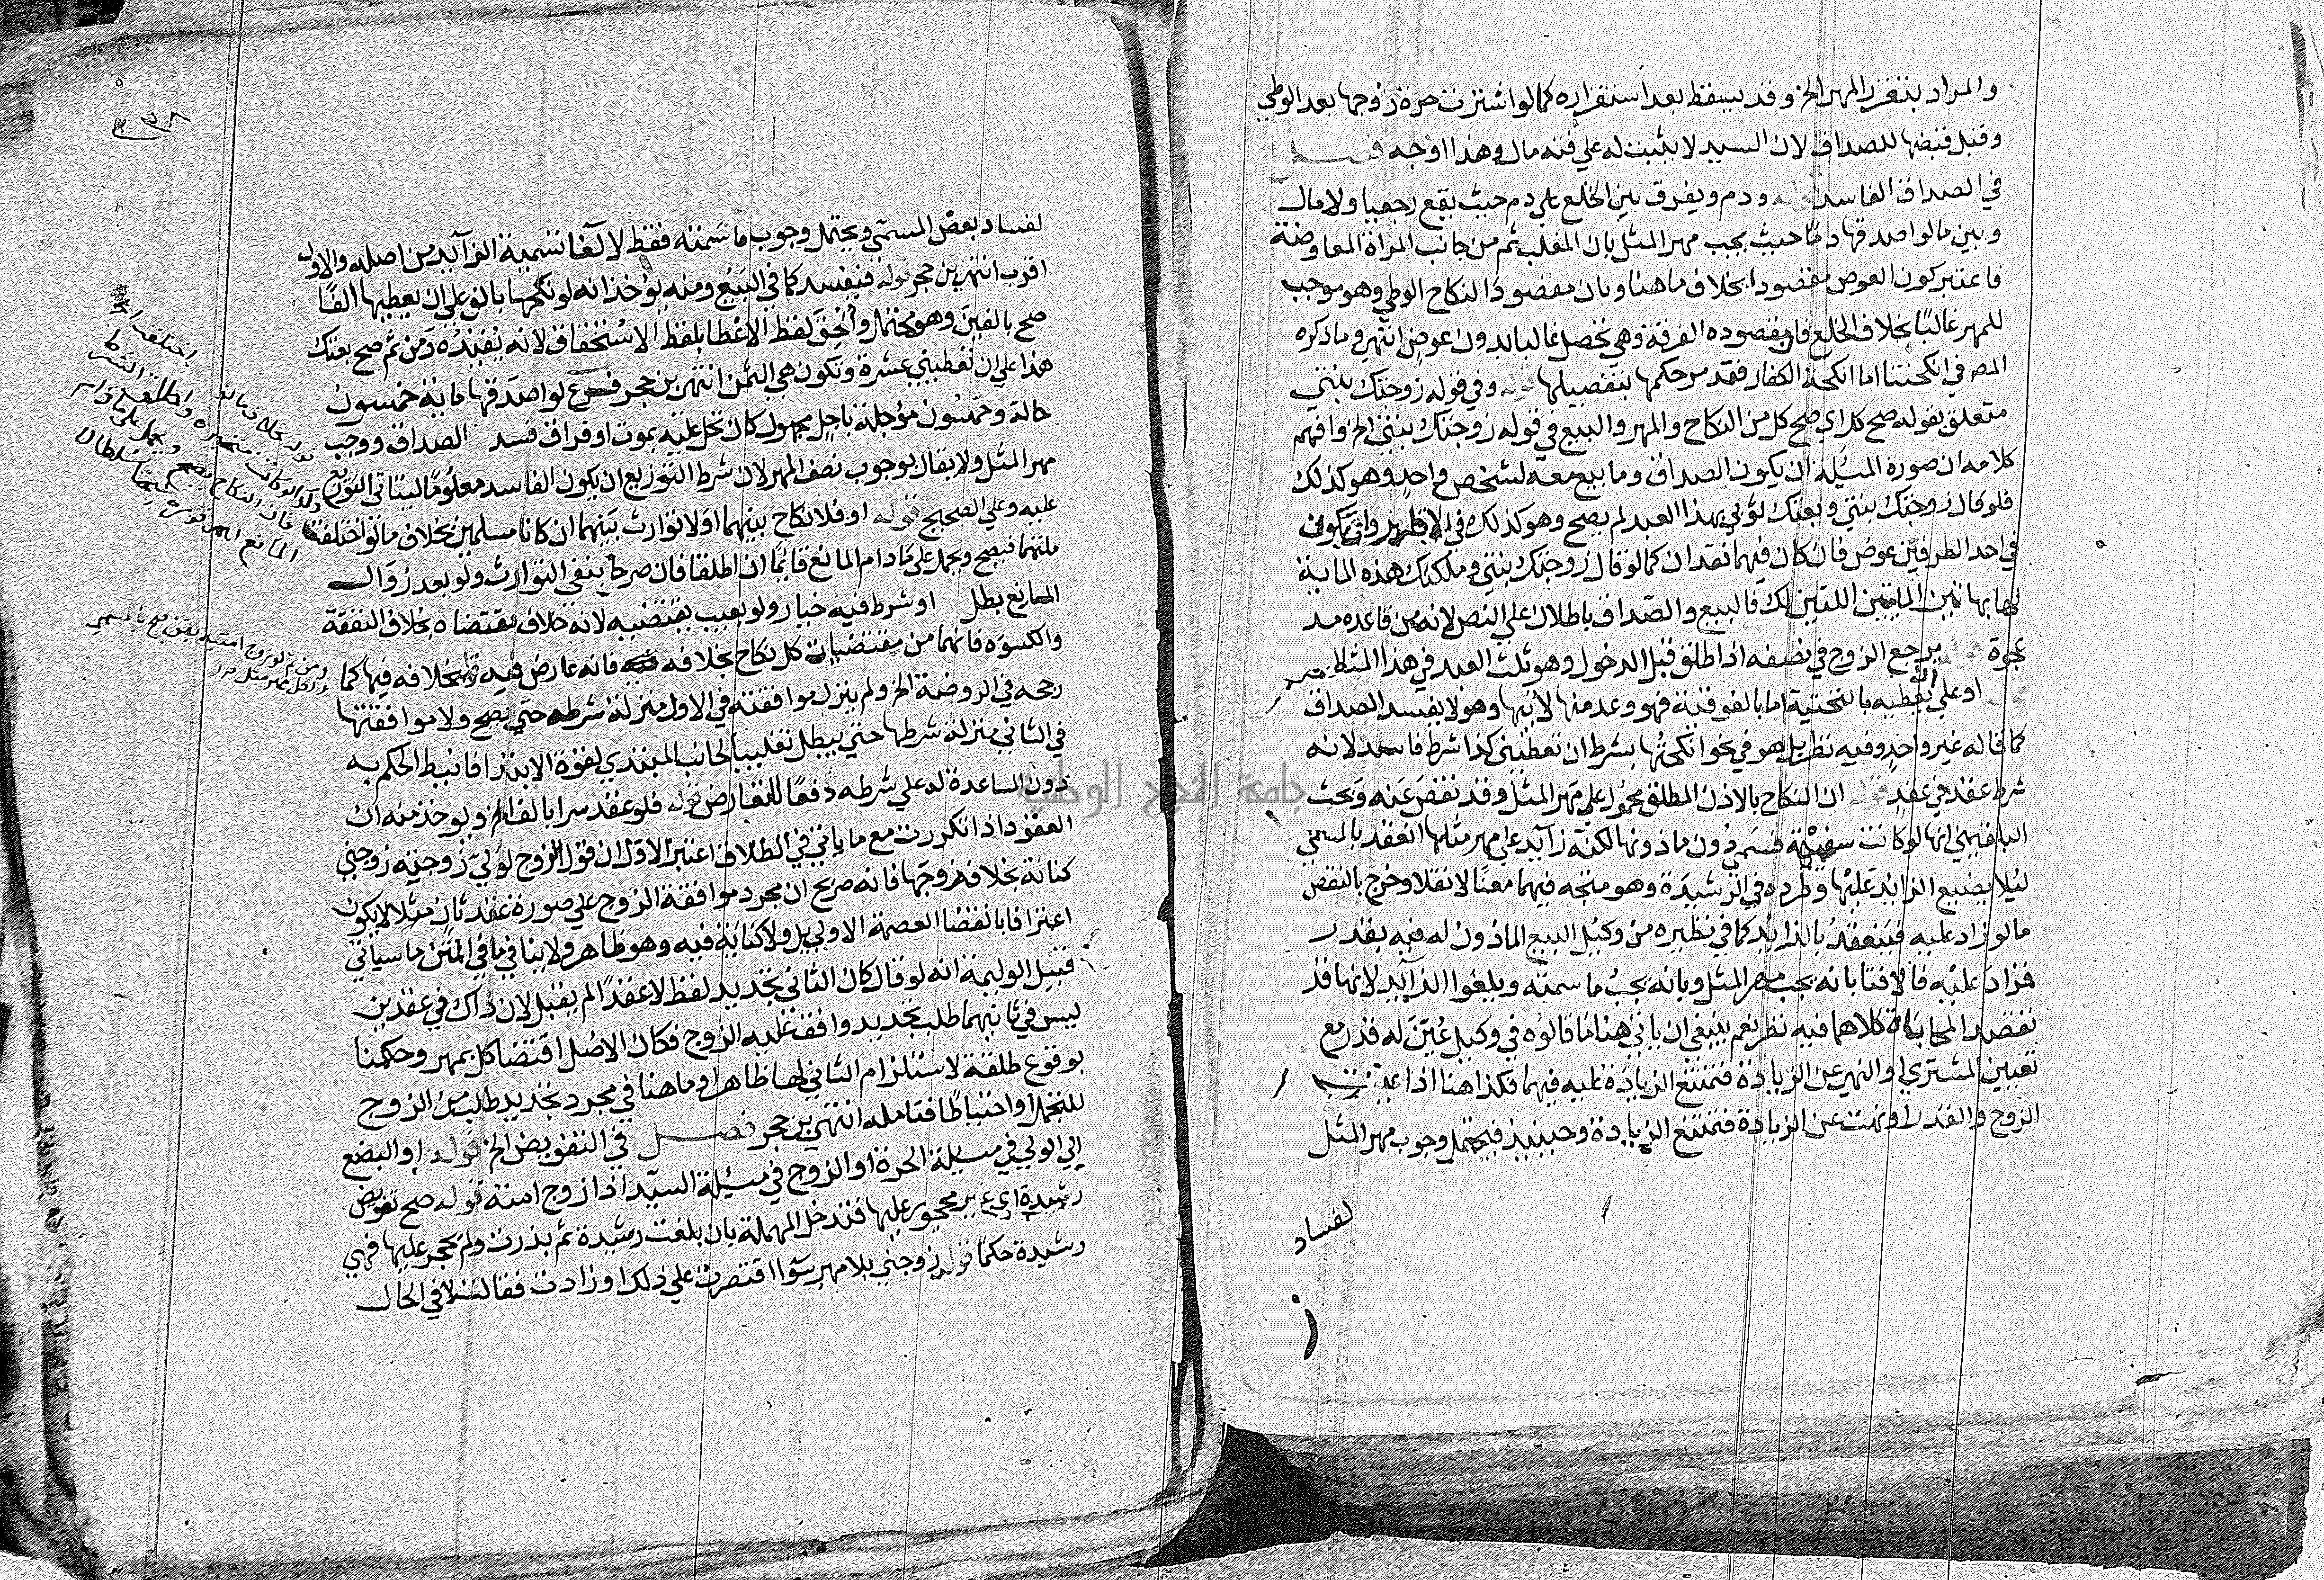 والمراد بتقرر المهر الخ وقد يسقط بعد استقراره كما لو اشترت حرة زوجها بعد الوطي
وقبل قبضها للصداق لان السيد لا يثبت له علي قنه مال وهذا اوجه فصل
في الصداق الفاسد قوله ودم ويفرق بين الخلع علي دم حيث يقع رجعيا ولا مال
وبين ما لو اصدقها دما حيث يجب مهر المثل بان المغلب ثم من جانب المراة المعاوضة
فاعتبر كون العوض مقصودا بخلاف ما هنا وبان مقصود النكاح الوطي وهو موجب
للمهر غالبا بخلاف الخلع فان مقصوده الفرقة وهي تحصل غالبا بدون عوض انتهي وما ذكره
المص في انكحتنا اما انكحة الكفار فقد مر حكمها بتفصيلها قوله وفي قوله زوجتك بنتي
متعلق بقوله صح كل اي صح كل من النكاح والمهر والبيع في قوله زوجتك بنتي الخ وافهم
كلامه ان صورة المسئلة ان يكون الصداق وما بيع معه لشخص واحد وهو كذلك
فلو قال زوجتك بنتي وبعتك ثوبي بهذا العبد لم يصح وهو كذلك في الاظهر وان يكون
في احد الطرفين عوض فان كان فيهما نقدان كما لو قال زوجتك بنتي وملكتك هذه الماية
لها بهاتين المايتين اللتين لك فالبيع والصداق باطلان علي النص لانه من قاعده مد
عجوة قوله يرجع الزوج في نصفه اذا طلق قبل الدخول وهو ثلث العبد في هذا المثال
او علي ان يعطيه بالتحتية اما بالفوقية فهو وعد منها لابيها وهو لا يفسد الصداق
كما قاله غير واحد وفيه نظر بل هو في نحو انكحتها بشرط ان تعطيني كذا شرط فاسد لانه
شرط عقد في عقد قوله ان النكاح بالاذن المطلق محمول علي مهر المثل وقد نقص عنه وبحث
البلقيني انها لو كانت سفيهة فسمي دون ماذونها لكنه زايد علي مهر مثلها انعقد بالمسمي
ليلا يضيع الزايد عليها وطرده في الرشيدة وهو متجه فيهما معنا لا نقلا وخرج بالنقص
ما لو زاد عليه فينعقد بالزائد كما في نظيره من وكيل البيع الماذون له فيه بقدر
فزاد عليه فالافتا بانه يجب مهر المثل وبانه يجب ما سمته ويلغوا الزايد لانها قد
تقصد المحاباة كلاهما فيه نظر نعم ينبغي ان ياتي هنا ما قالوه في وكيل عين له قدر مع
تعيين المشتري او النهي عن الزيادة فتمتنع الزيادة عليه فيهما فكذا هنا اذا عينت
الزوج والقدر او نهت عن الزيادة فتمتنع الزيادة وحينيذ فيحتمل وجوب مهر المثل
لفساد
٣٨
لفساد بعض المسمي ويحتمل وجوب ما سمته فقط لالغا تسمية الزآيد من اصله والاول
اقرب انتهي بن حجر قوله فيفسد كما في البيع ومنه يؤخذ انه لو نكحها بالف علي ان يعطيها الفا
صح بالفين وهو محتمل والحق لفظ الاعطا بلفظ الاستحقاق لانه يفيده ومن ثم صح بعتك
هذا علي ان تعطيني عشرة وتكون هي الثمن انتهي بن حجر فرع لو اصدقها ماية خمسون
حالة وخمسون مؤجلة باجل مجهول كان تحل عليه بموت او فراق فسد الصداق ووجب
مهر المثل ولا يقال بوجوب نصف المهر لان شرط التوزيع ان يكون الفاسد معلوما ليتاتي التوزيع
عليه وعلي الصحيح قوله او فلا نكاح بينهما او لا توارث بينهما ان كانا مسلمين بخلاف ما لو اختلفت
ملتهما فيصح ويحمل علي ما دام المانع قايما ان اطلقا فان صرحا بنفي التوارث ولو بعد زوال
المانع بطل او شرط فيه خيار ولو بعيب يقتضيه لانه خلاف مقتضاه بخلاف النفقة
والكسوه فانهما من مقتضيات كل نكاح بخلافه فانه عارض فيه قوله بخلافه فيها كما
رجحه في الروضة الخ ولم ينزل موافقته في الاول منزلة شرطه حتي يصح ولا موافقتها
في الثاني منزلة شرطها حتي يبطل تغليبا لجانب المبتدي لقوة الابتدا فانيط الحكم به
دون المساعدة له علي شرطه دفعا للتعارض قوله فلو عقد سرا بالف الخ ويوخذ منه ان
العقود اذا تكررت مع ما ياتي في الطلاق اعتبر الاول ان قول الزوج لولي زوجته زوجني
كناية بخلاف زوجها فانه صريح ان مجرد موافقة الزوج علي صورة عقد ثان مثلا لا يكون
اعترافا بانقضا العصمة الاولي بل ولا كناية فيه وهو ظاهر ولا ينافي ما في المتن ما سياتي
قبيل الوليمة انه لو قال كان الثاني تجديد لفظ لا عقدا لم يقبل لان ذاك في عقدين
ليس في ثانيهما طلب تجديد وافق عليه الزوج فكان الاصل اقتضا كل بمهر وحكمنا
بوقوع طلقة لاستلزام الثاني لها ظاهرا وما هنا في مجرد تجديد طلب من الزوج
للتجمل او احتياطا فتامله انتهي بن حجر فصل في التفويض الخ قوله او البضع
الي الولي في مسيلة الحرة او الزوج في مسئلة السيد اذا زوج امته قوله صح تفويض
رشيدة اي غير محجور عليها فتدخل المهملة بان بلغت رشيدة ثم بذرت ولم يحجر عليها فهي
رشيدة حكما قوله زوجني بلا مهر سوا اقتصرت علي ذلك او زادت فقالت لا في الحال
ومن ثم لو تزوج امتين بعقد صح بالمسمي
جامعة النجاح الوطنية